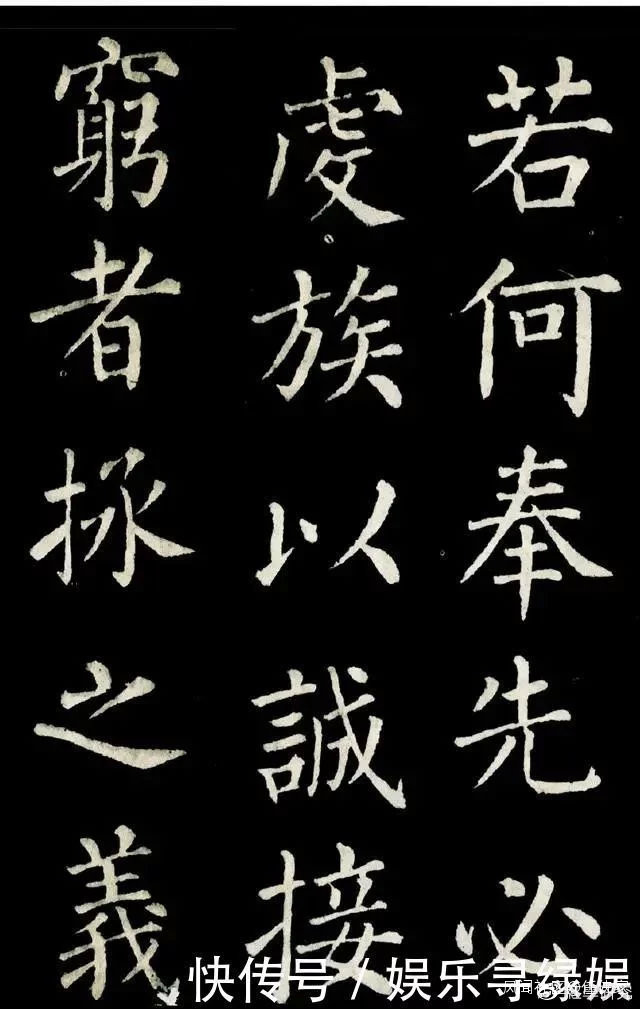 若何奉先必
虔族以誠接
窮者拯之義
快传号/娱乐寻绿娱